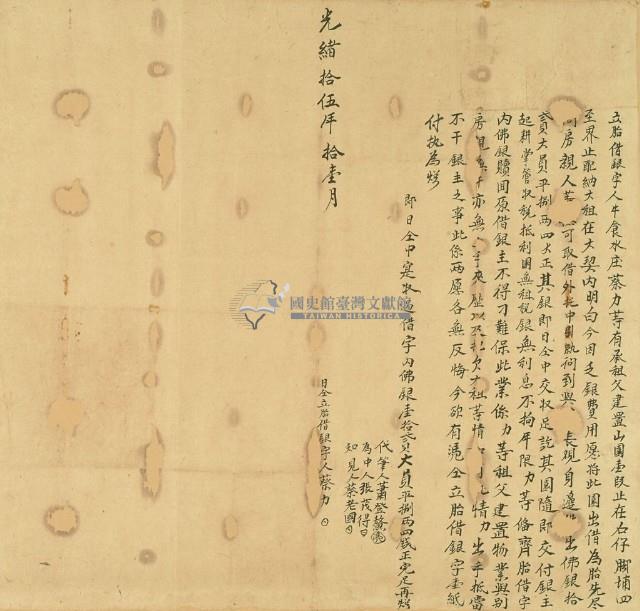 立胎借銀字人牛食水庄蔡力等有承祖父建置山園壹段止在石仔脚埔四
至界止配納大租在大契內明白今因乏銀費用愿將此園出借為胎先尽
問房親人等 可取借外托中引就向到與 長观身邊 出佛銀拾
弍員大員平捌兩四犬正其銀即日仝中交收足訖其園隨即交付銀主
起耕掌管收稅抵利園無租稅銀無利息不拘年限力等俻齊胎借字
內佛銀贖回原借銀主不得刁難保此業係力等祖父建置物業與別
房親無干亦無 手來歷以及拖欠大租等情 情力出手抵當
不干銀主之事此係兩愿各無反悔今欲有憑仝立胎借銀字壹紙
付执為炤
即日仝中寔收 借字內佛銀壹拾弍員大員平捌兩四 正完足再炤
代筆人蕭登
為中人張茂得
知見人蔡老國
日仝立胎借銀字人蔡力
光緒拾伍年拾壹月
國史館臺灣文獻館
TAIWAN HISTORICA